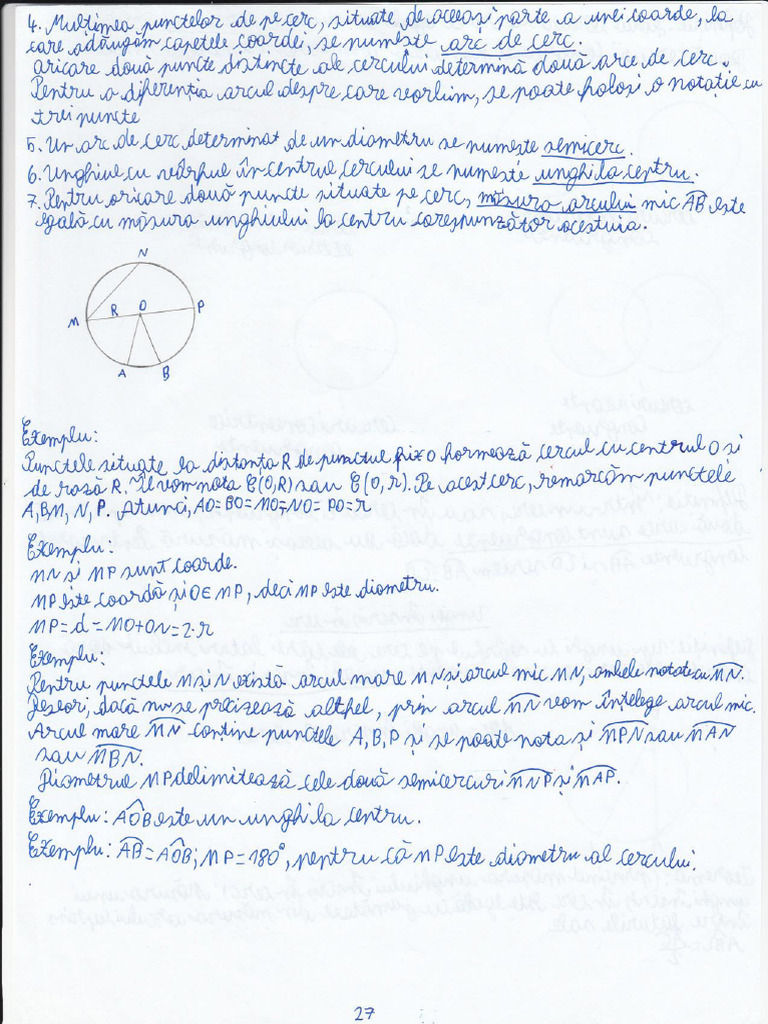 4. Mulțimea punctelor de pe cerc, situate de aceeași parte a unei coarde, la
care adăugăm capetele coardei, se numește arc de cerc.
Oricare două puncte distincte ale cercului determină două arce de cerc.
Pentru a diferenția arcul despre care vorbim, se poate folosi o notație cu
trei puncte
5. Un arc de cerc determinat de un diametru se numește semicerc.
6. Unghiul cu vârful în centrul cercului se numește unghi la centru.
7. Pentru oricare două puncte situate pe cerc, măsura arcului mic AB este
egală cu măsura unghiului la centru corespunzător acestuia.
N
M R O P
A B
Exemplu:
Punctele situate la distanța R de punctul fix O formează cercul cu centrul O și
de rază R. Îl vom nota C(O,R) sau C(O,r). Pe acest cerc, remarcăm punctele
A,B,M,N,P. Atunci, AO=BO=MO=NO=PO=r
Exemplu:
MN și MP sunt coarde.
MP este coardă și O∈MP, deci MP este diametru.
MP=d=MO+ON=2·r
Exemplu:
Pentru punctele M și N există arcul mare MN și arcul mic MN, ambele notate cu MN.
Deseori, dacă nu se precizează altfel, prin arcul MN vom înțelege arcul mic.
Arcul mare MN conține punctele A,B,P și se poate nota și MPN sau MAN
sau MBN.
Diametrul MP delimitează cele două semicercuri MNP și MAP.
Exemplu: AOB este un unghi la centru.
Exemplu: AB=AOB; MP=180°, pentru că MP este diametru al cercului.
27